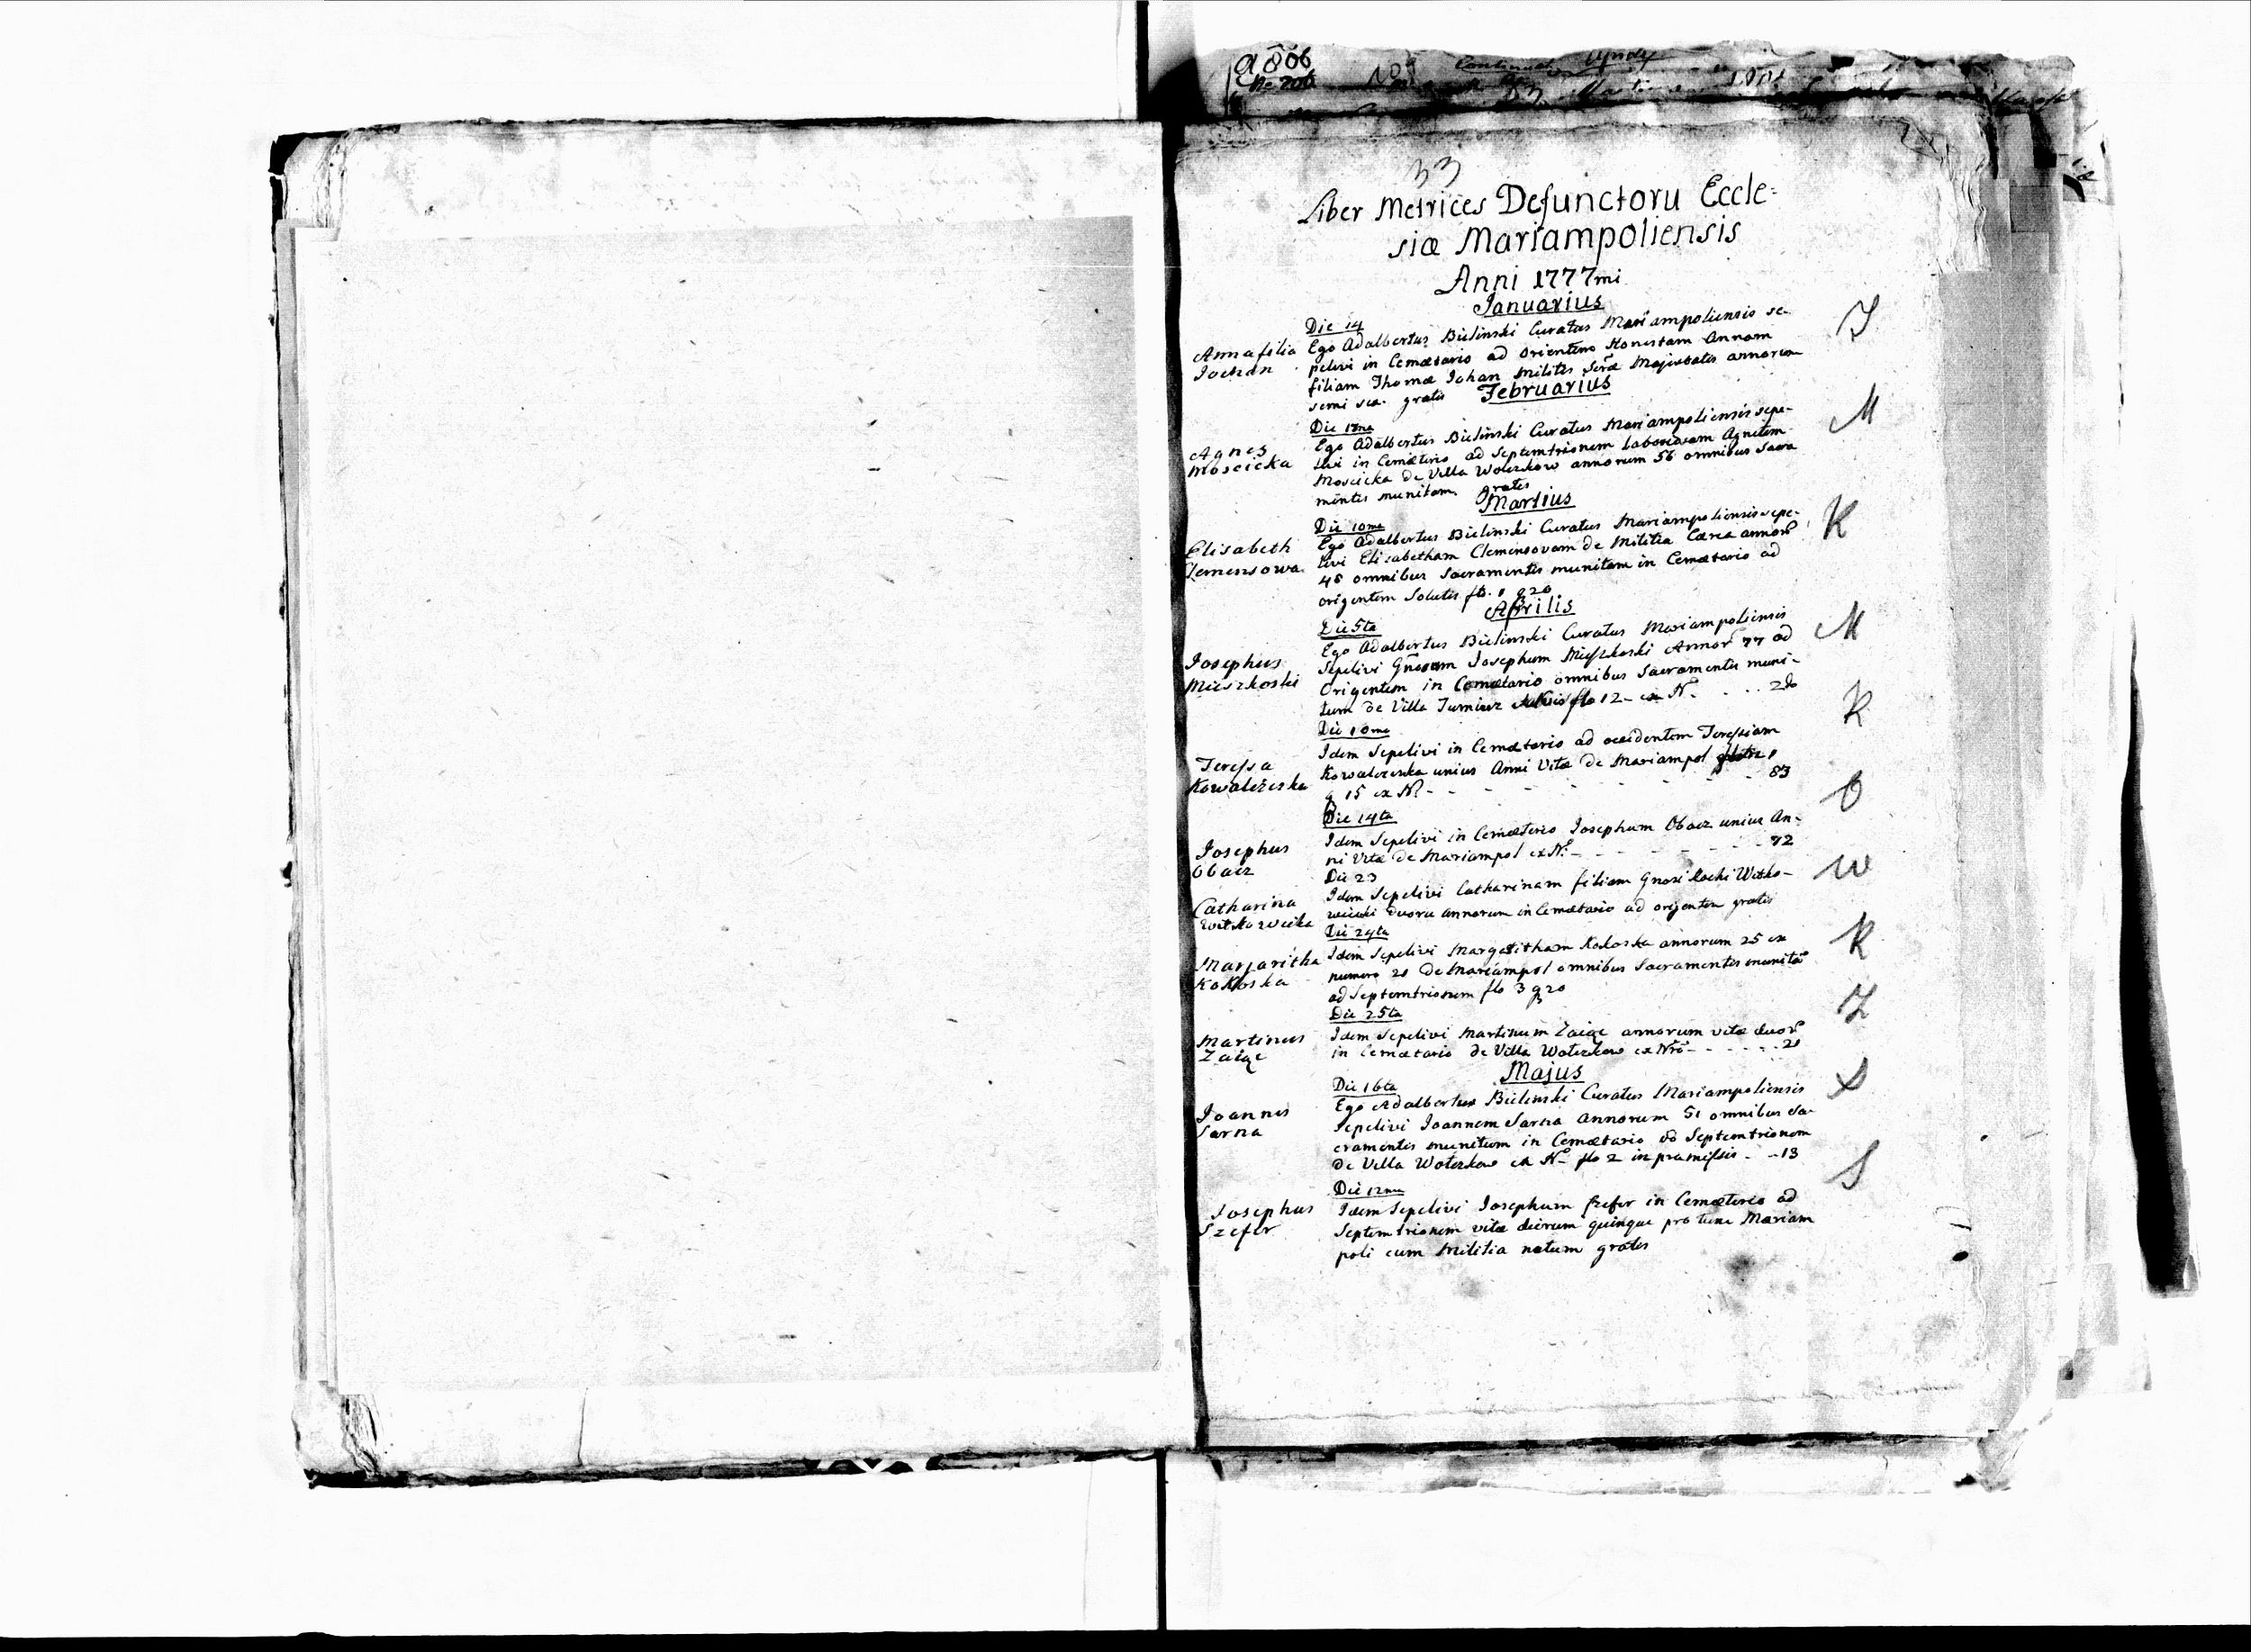 a 806
No 206
33
Liber Metrices Defunctoru Eccle=
siæ Mariampoliensis
Anni 1777mi
Januarius
Die 14
Anna filia
Jochan
Ego Adalbertus Bielinski Curatus Mariampoliensis se-
pelivi in Cemætario ad Orientem Honestam Annam
filiam Thomæ Johan Militis Majestatis annorum
semi gratis
J
Februarius
Agnes
Moscicka
Ego Adalbertus Bielinski Curatus Mariampoliensis sepe-
livi in Cemæterio ad Septemtrionem Laboriosam Agnetem
Moscicka de Villa Wolczkow annorum 56 omnibus Sacra
mentis munitam. gratis
M
Martius
Die 10ma
Elisabeth
Clemensowa
Ego Adalbertus Bielinski Curatus Mariampoliensis sepe-
livi Elisabetham Clemensovam de Militia Cærea annor
46 omnibus Sacramentis munitam in Cemætario ad
origentem Solutis flo. 1 g 20
K
Aprilis
Die 5ta
Josephus
Mieszkoski
Ego Adalbertus Bielinski Curatus Mariampoliensis
Sepelivi Josephum Mieszkoski Annor 77 ad
Origentem in Cemætario omnibus Sacramentis muni-
tum de Villa flo 12 - ex N.
M
Die 10ma
Teressa
Kowalczeska
Idem Sepelivi in Cemætario ad occidentem Teressiam
Kowalczeska unius Anni Vitæ de Mariampol
g 15 ex N. - - - - - - 83
K
Die 14ta
Josephus
Obacz
Idem Sepelivi in Cemæterio Josephum Obacz unius An-
ni Vitæ de Mariampol ex N. - - - - - - 72
O
Die 23
Catharina
Witkowicka
Idem Sepelivi Catharinam filiam Gnosi Rochi Witko-
wicki duoru annorum in Cemætario ad orjentem gratis
W
Die 24ta
Margaritha
Kokoska
Idem Sepelivi Margaritham Kokoska annorum 25 ex
numero 20 de Mariampol omnibus Sacramentis munitã
ad Septemtrionem flo 3 g 20
K
Die 25ta
Martinus
Zaiąc
Idem Sepelivi Martinum Zaiąc annorum vitæ duor
in Cemætario de Villa Wolczkow ex Nrõ - - - - 20
Z
Majus
Die 16ta
Joannes
Sarna
Ego Adalbertus Bielinski Curatus Mariampoliensis
Sepelivi Joannem Sarna annorum 51 omnibus Sa-
cramentis munitum in Cemætario ad Septemtrionem
de Villa Wolczkow ex N. flo 2 in præmissis - - 13
S
Josephus
Szefer
Idem Sepelivi Josephum Szefer in Cemæterio ad
Septemtrionem vitæ dierum quinque pro tunc Mariam
poli cum Militia natum gratis
S